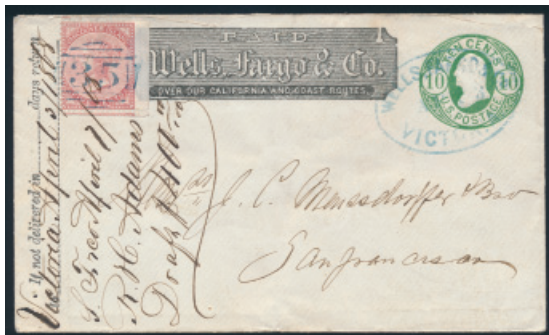 PAID
Wells, Fargo & Co.
OVER OUR CALIFORNIA AND COAST ROUTES.
35
TEN CENTS
10 10
U.S. POSTAGE
WELLS
VICTOR
If not delivered in days return
Victoria April 2/1863
R. H. Adams
J. C. Meussdorffer & Bro
San francisco